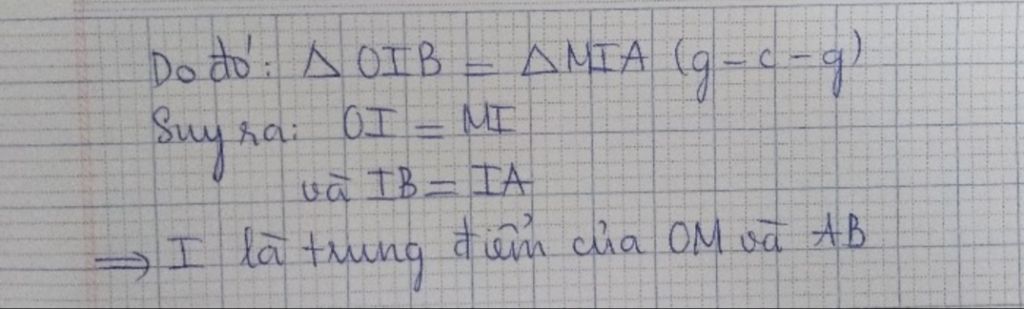 Do đó: Δ OIB = Δ MIA (g-c-g)
Suy ra: OI = MI
và IB = IA
⟹ I là trung điểm của OM và AB